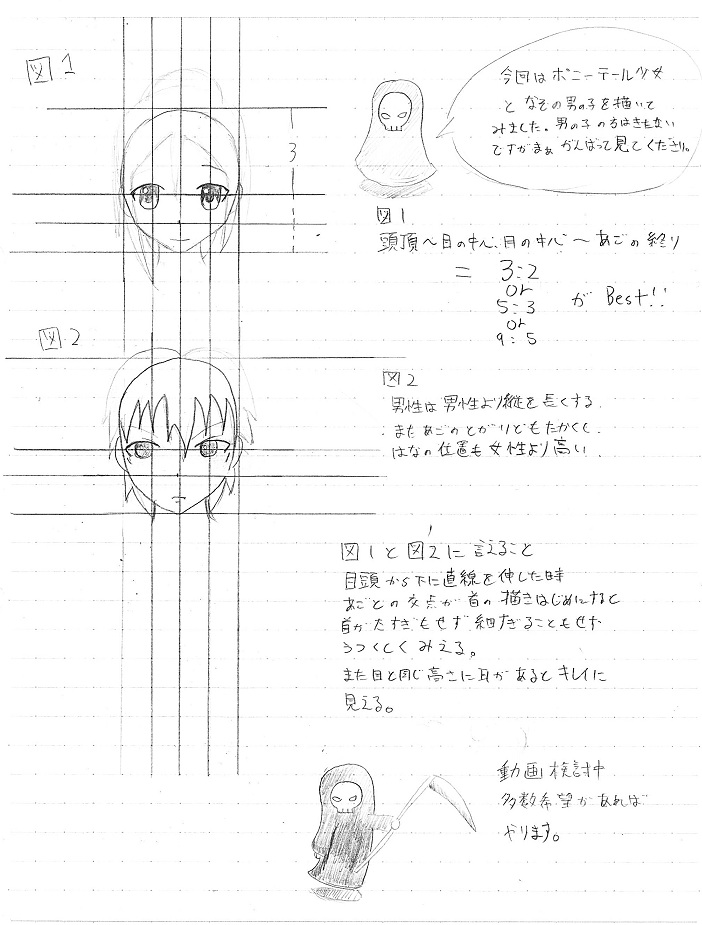 図1
今回はポニーテール少女
となぞの男の子を描いて
みました。男の子の方はきもない
ですがまぁがんばって見てください。
3
図1
頭頂～目の中心、目の中心～あごの終り
= 3:2
or
5:3 が Best!!
or
9:5
図2
図2
男性は男性より縦を長くする.
またあごのとがりどもたかくし.
はなの位置も女性より高い.
図1と図2に言えること
目頭から下に直線を伸した時
あごとの交点が首の描きはじめにすると
首が太すぎもせず細すぎることもせず
うつくしくみえる。
また目と同じ高さに耳があるとキレイに
見える。
動画検討中
多数希望があれば
やります。